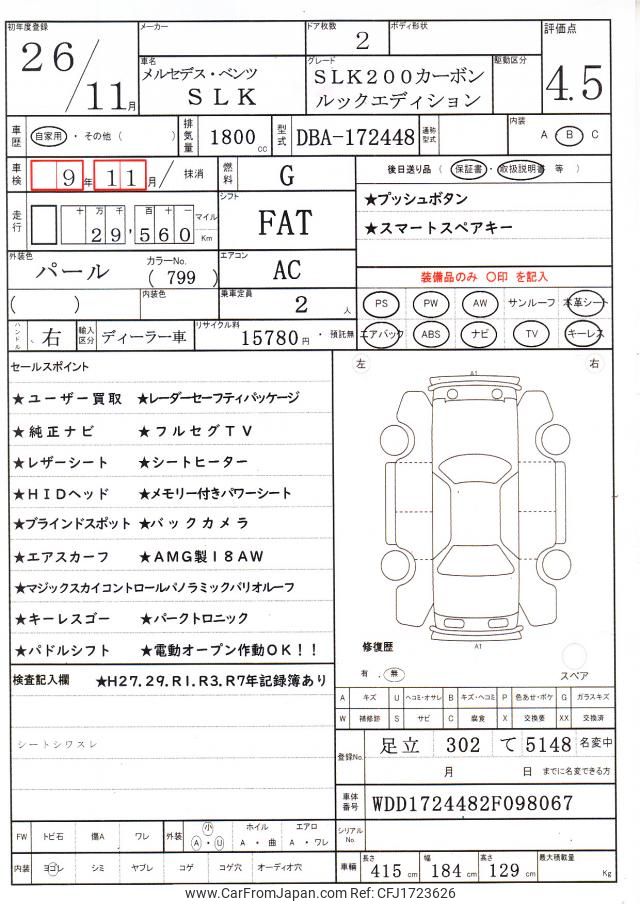 初年度登録 26/11月
メーカー
車名 メルセデス・ベンツ
SLK
ドア枚数 2
ボディ形状
グレード SLK200カーボン
ルックエディション
駆動区分
評価点 4.5
車歴 自家用・その他( )
排気量 1800cc
型式 DBA-172448
通称型式
内装 A B C
車検 9年11月/ 抹消
燃料 G
後日送り品 ( 保証書・取扱説明書 等 )
★プッシュボタン
★スマートスペアキー
走行 十万千百十一
29,560 マイル Km
シフト FAT
外装色 パール
カラーNo. (799)
エアコン AC
( )
内装色
乗車定員 2人
装備品のみ 〇印 を記入
PS PW AW サンルーフ 本革シート
エアバック ABS ナビ TV キーレス
ハンドル 右
輸入区分 ディーラー車
リサイクル料 15780円・預託無
セールスポイント
★ユーザー買取 ★レーダーセーフティパッケージ
★純正ナビ ★フルセグTV
★レザーシート ★シートヒーター
★HIDヘッド ★メモリー付きパワーシート
★ブラインドスポット ★バックカメラ
★エアスカーフ ★AMG製18AW
★マジックスカイコントロールパノラミックバリオルーフ
★キーレスゴー ★パークトロニック
★パドルシフト ★電動オープン作動OK!!
左 右
A1
A1
修復歴
有 . 無
スペア
検査記入欄 ★H27.29.R1.R3.R7年記録簿あり
シートシワスレ
A キズ U ヘコミ・オサレ B キズ・ヘコミ P 色あせ・ボケ G ガラスキズ
W 補修跡 S サビ C 腐食 X 交換要 XX 交換済
登録No. 足立 302 て 5148 名変中
月 日 までに名変できる方
車体番号 WDD1724482F098067
シリアルNo.
FW トビ石 傷A ワレ
外装 小 A・U
ホイル A・曲
エアロ A・ワレ
内装 ヨゴレ シミ ヤブレ コゲ コゲ穴 オーディオ穴
車輌 長さ 415cm 幅 184cm 高さ 129cm 最大積載量 Kg
www.CarFromJapan.com Ref: CFJ1723626